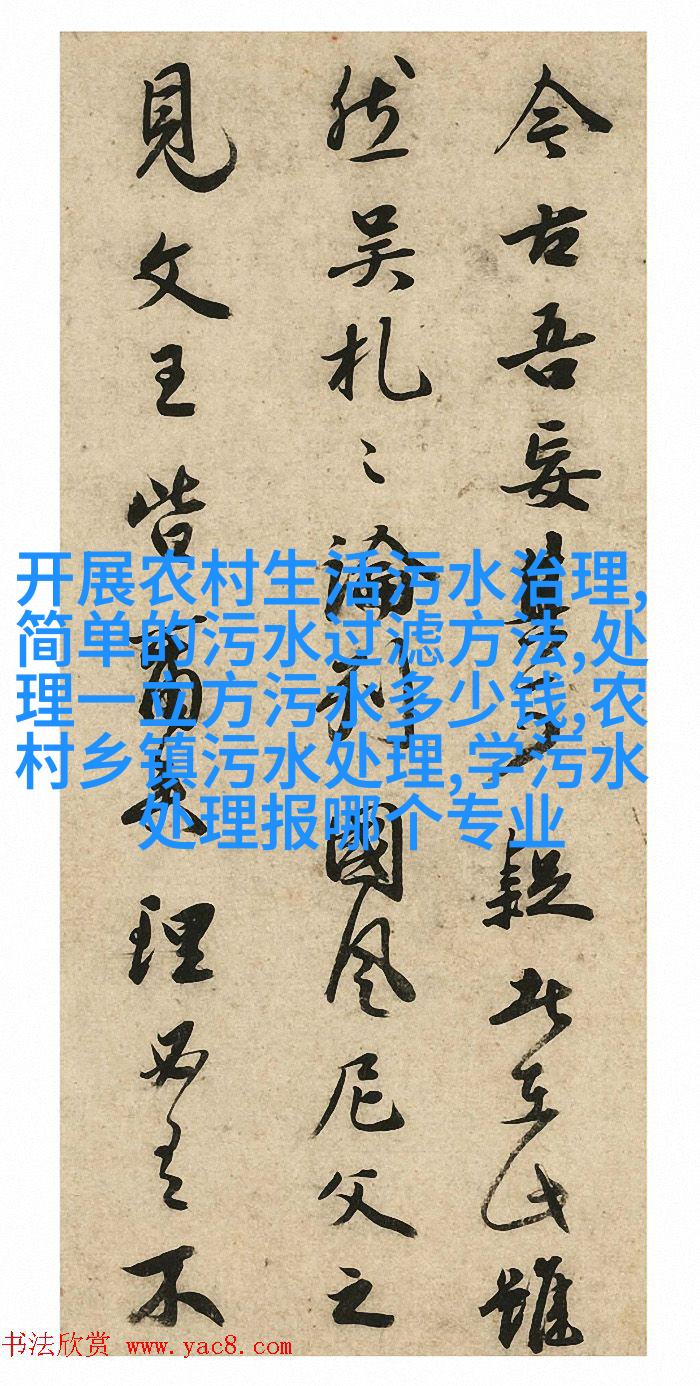 今古吾妄疑此在此雖
然吴札〻論國風尼父之
見文王皆理必有不
开展农村生活污水治理,
简单的污水过滤方法,处
理一立方污水多少钱,农
村乡镇污水处理,学污水
处理报哪个专业
书法欣赏 www.yac8.com